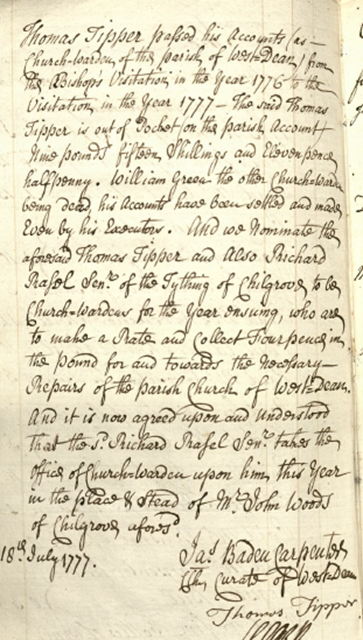 Thomas Tipper passed his Accounts (as
Church-warden of the parish of West-Dean) from
the Bishop's Visitation in the Year 1776 to the
Visitation in the Year 1777 — The said Thomas
Tipper is out of Pocket (on the parish Account
Nine pounds fifteen Shillings and Elevenpence
halfpenny. William Green the other Church-Warden
being dead, his Accounts have been settled and made
Even by his Executors. And we Nominate the
aforesaid Thomas Tipper and Also Richard
Rasel Senr. of the Tything of Chilgrove to be
Church-wardens for the Year ensuing, who are
to make a Rate and Collect Fourpence in
the pound for and towards the Necessary
Repairs of the parish Church of West-Dean.
And it is now agreed upon and Understood
that the Sd. Richard Rasel Senr. takes the
office of Church-Warden upon him this Year
in the place & Stead of Mr. John Woods
of Chilgrove aforesd.
18th July 1777. Jas. Baden Carpenter
Curate of West-Dean
Thomas Tipper